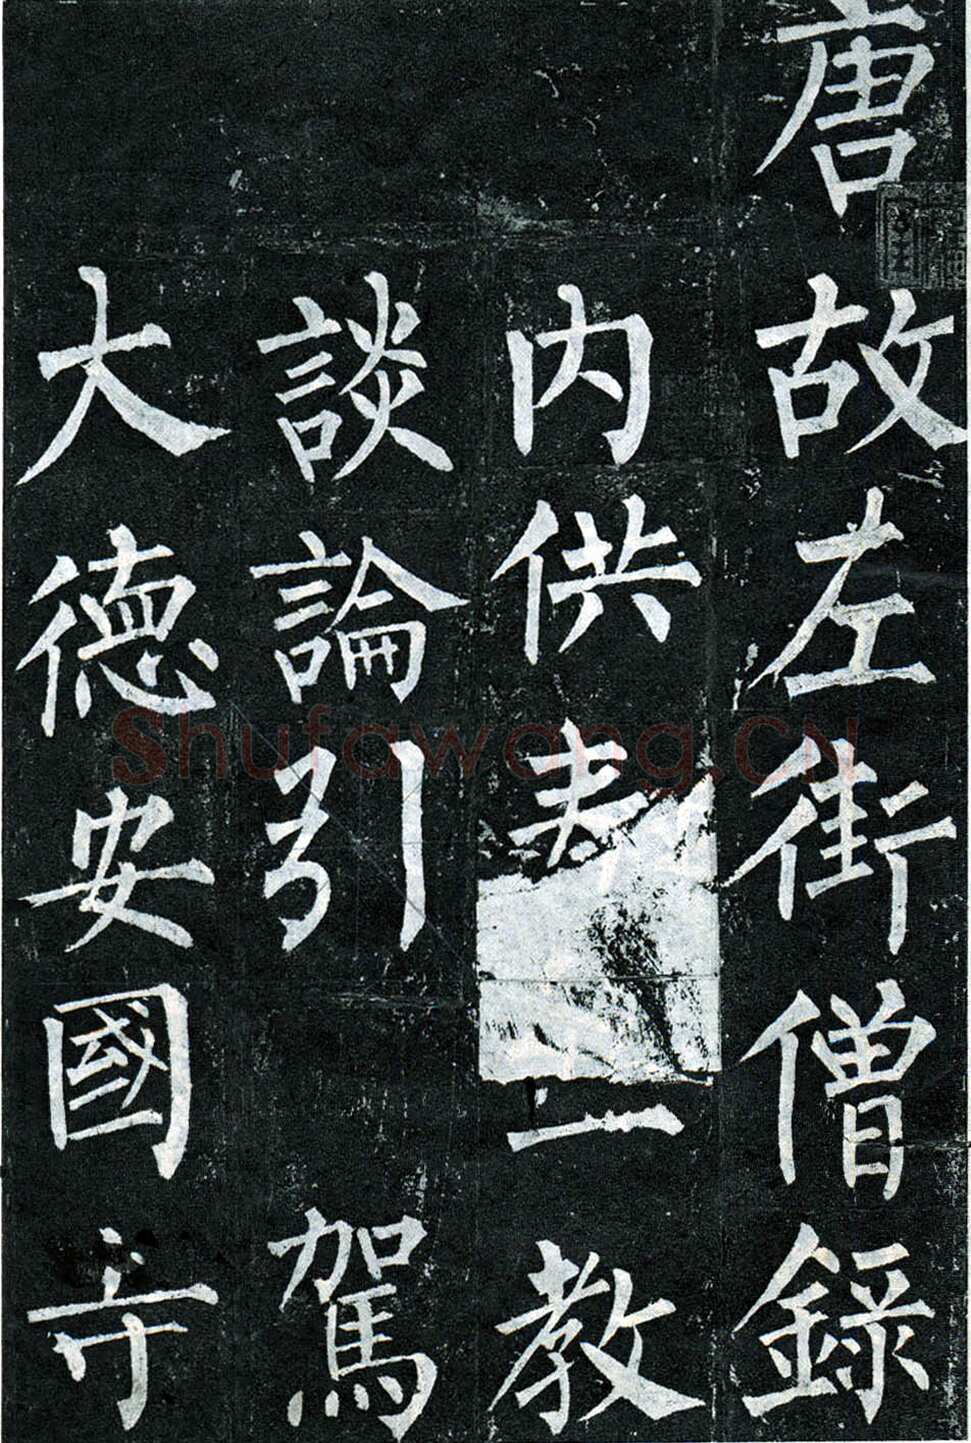 唐故左街僧錄
内供奉教
談論引駕
大德安國寺
Shufawang.CN